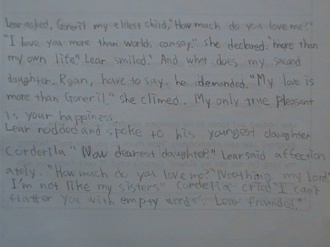 Lear asked, Goneril my eldest child, "How much do you love me?"
"I love you more than world, can say". she declared. "more than
my own life." Lear smiled. And what does, my second
daughter, Rgan, have to say, he demanded. "My love is
more than Goneril." she climed. My only true pleasant
is your happiness.
Lear nodded and spoke to his youngest daughter
Corderlla "Now dearest daughter" Lear said affection
ately. "How much do you love me?" "Noothing my lord"
I'm not like my sisters" Cordella cried "I can't
flatter you with empty words". Lear frounded."